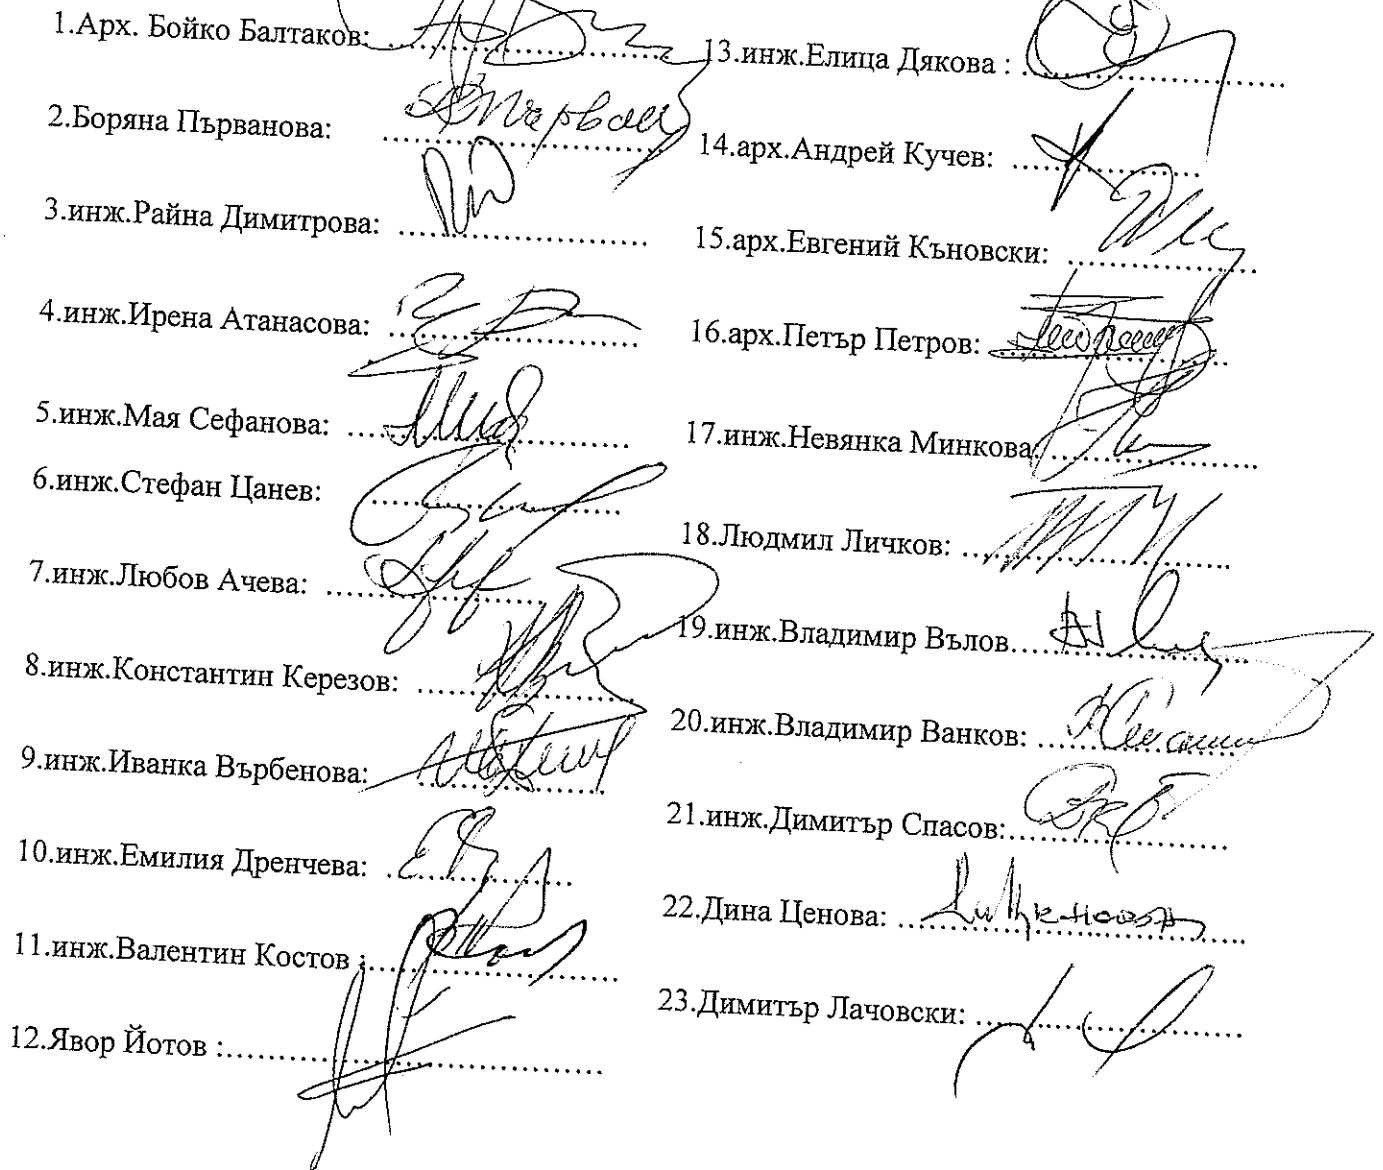 1.Арх. Бойко Балтаков: ........................
2.Боряна Първанова: ........................
3.инж.Райна Димитрова: ........................
4.инж.Ирена Атанасова: ........................
5.инж.Мая Сефанова: ........................
6.инж.Стефан Цанев: ........................
7.инж.Любов Ачева: ........................
8.инж.Константин Керезов: ........................
9.инж.Иванка Върбенова: ........................
10.инж.Емилия Дренчева: ........................
11.инж.Валентин Костов :........................
12.Явор Йотов :........................
13.инж.Елица Дякова : ........................
14.арх.Андрей Кучев: ........................
15.арх.Евгений Къновски: ........................
16.арх.Петър Петров: ........................
17.инж.Невянка Минкова:........................
18.Людмил Личков: ........................
19.инж.Владимир Вълов........................
20.инж.Владимир Ванков: ........................
21.инж.Димитър Спасов:........................
22.Дина Ценова: ........................
23.Димитър Лачовски: ........................